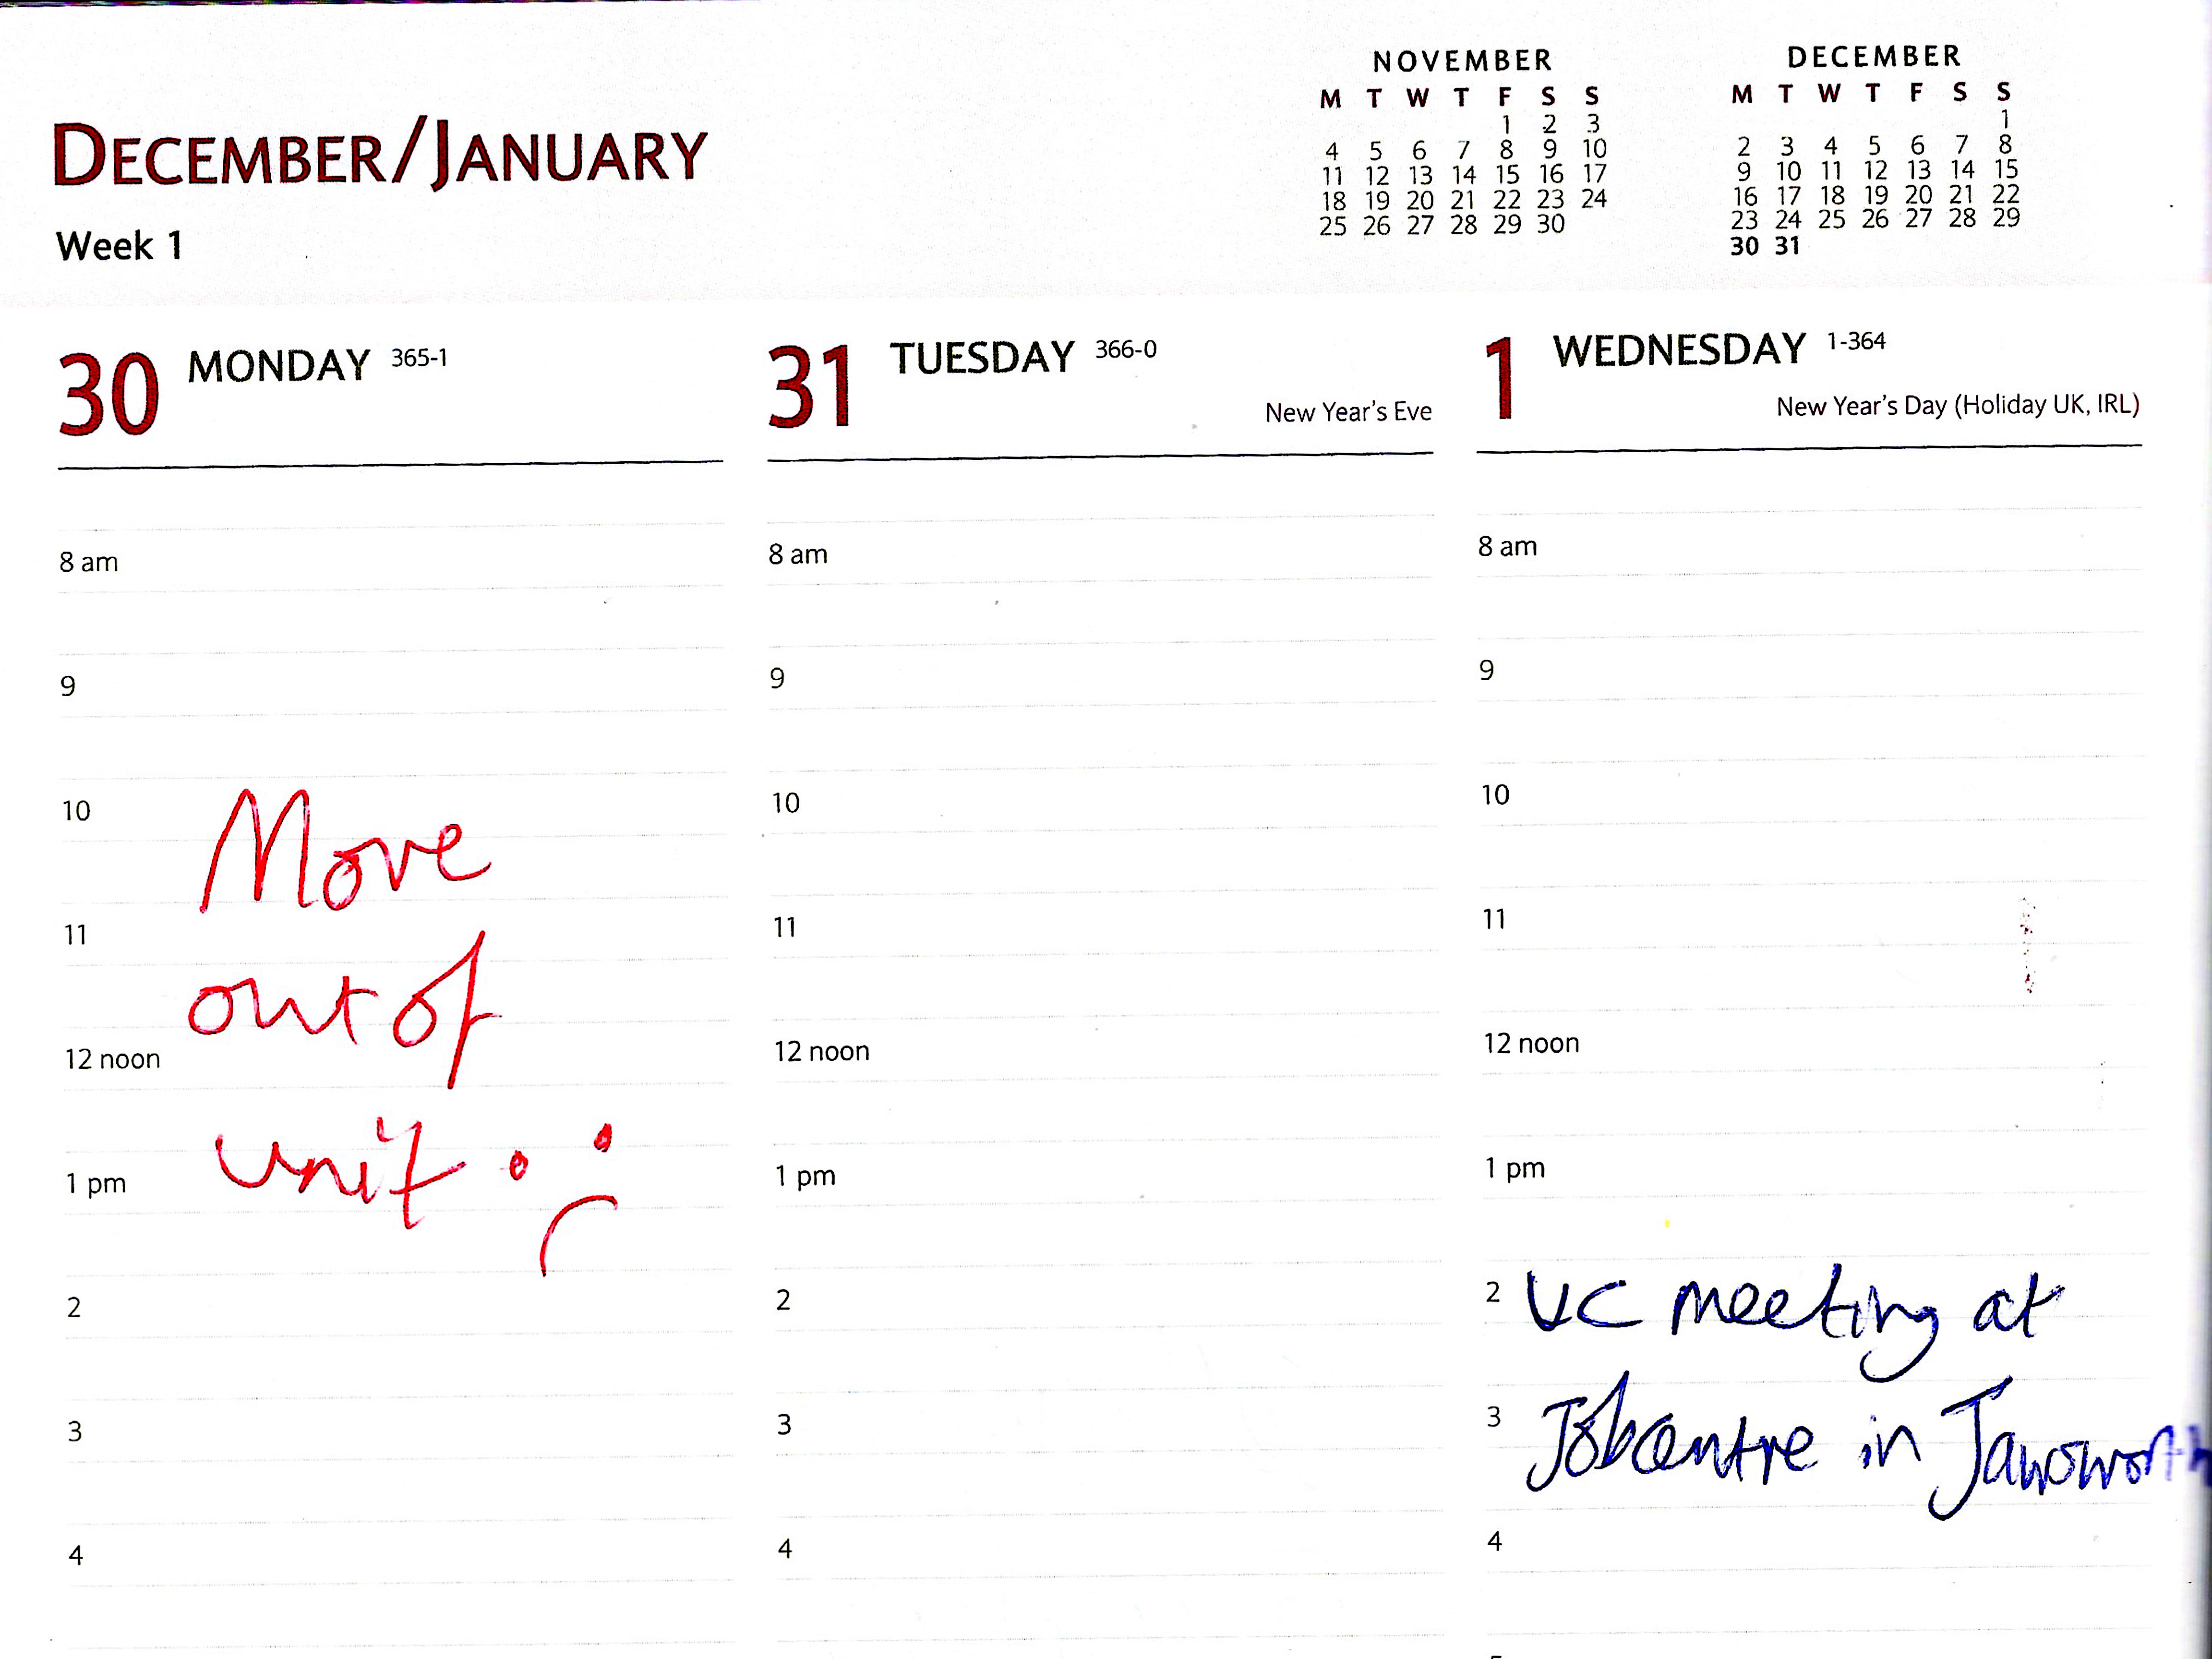 DECEMBER/JANUARY
Week 1
NOVEMBER
M T W T F S S
1 2 3
4 5 6 7 8 9 10
11 12 13 14 15 16 17
18 19 20 21 22 23 24
25 26 27 28 29 30
DECEMBER
M T W T F S S
1
2 3 4 5 6 7 8
9 10 11 12 13 14 15
16 17 18 19 20 21 22
23 24 25 26 27 28 29
30 31
30 MONDAY 365-1
8 am
9
10
Move
11
out of
12 noon
unit
1 pm
2
3
4
31 TUESDAY 366-0
New Year's Eve
8 am
9
10
11
12 noon
1 pm
2
3
4
1 WEDNESDAY 1-364
New Year's Day (Holiday UK, IRL)
8 am
9
10
11
12 noon
1 pm
2 UC meeting at
3 Jobcentre in
4